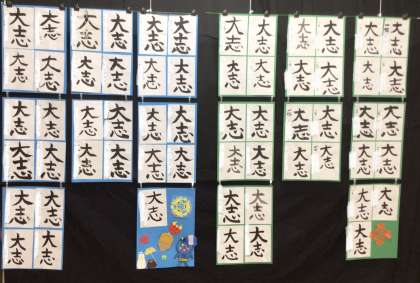 大志 大志 大志 大志 大志 大志 大志 大志 大志 大志 大志 大志
大志 大志 大志 大志 大志 大志 大志 大志 大志 大志 大志 大志
大志 大志 大志 大志 大志 大志 大志 大志 大志 大志 大志 大志
大志 大志 大志 大志 大志 大志 大志 大志 大志 大志 大志 大志
大志 大志 大志 大志 大志 大志 大志
大志 大志 大志 大志 大志